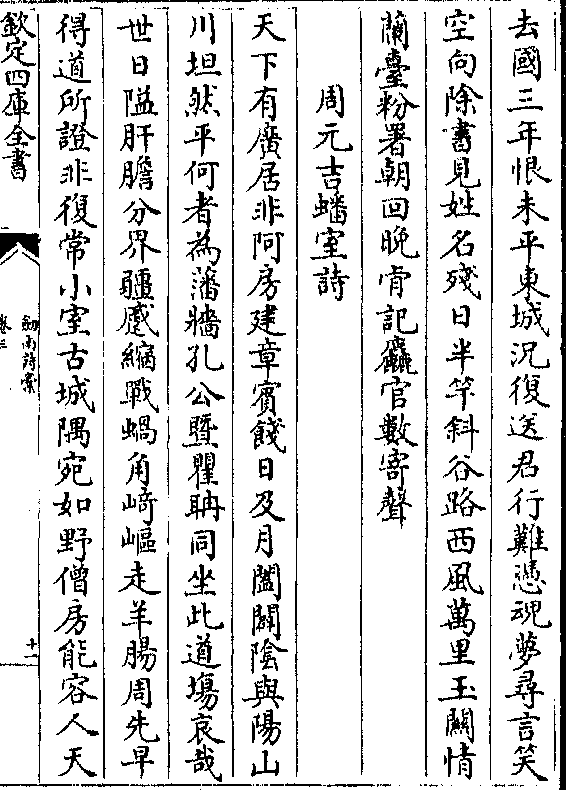 去國三年恨未平東城況復送君行難憑魂夢尋言笑
空向除書見姓名殘日半竿斜谷路西風萬里玉關情
蘭臺粉署朝回晚肯記麤官數寄聲
周元吉蟠室詩
天下有廣居非阿房建章賓餞日及月闔闢陰與陽山
川坦然平何者為藩牆孔公暨瞿聃同坐此道場哀哉
世日隘肝膽分界疆蹙縮戰蝸角﨑嶇走羊腸周先早
得道所證非復常小室古城隅宛如野僧房能容人天
欽定四庫全書
劍南詩稾
卷三
十一